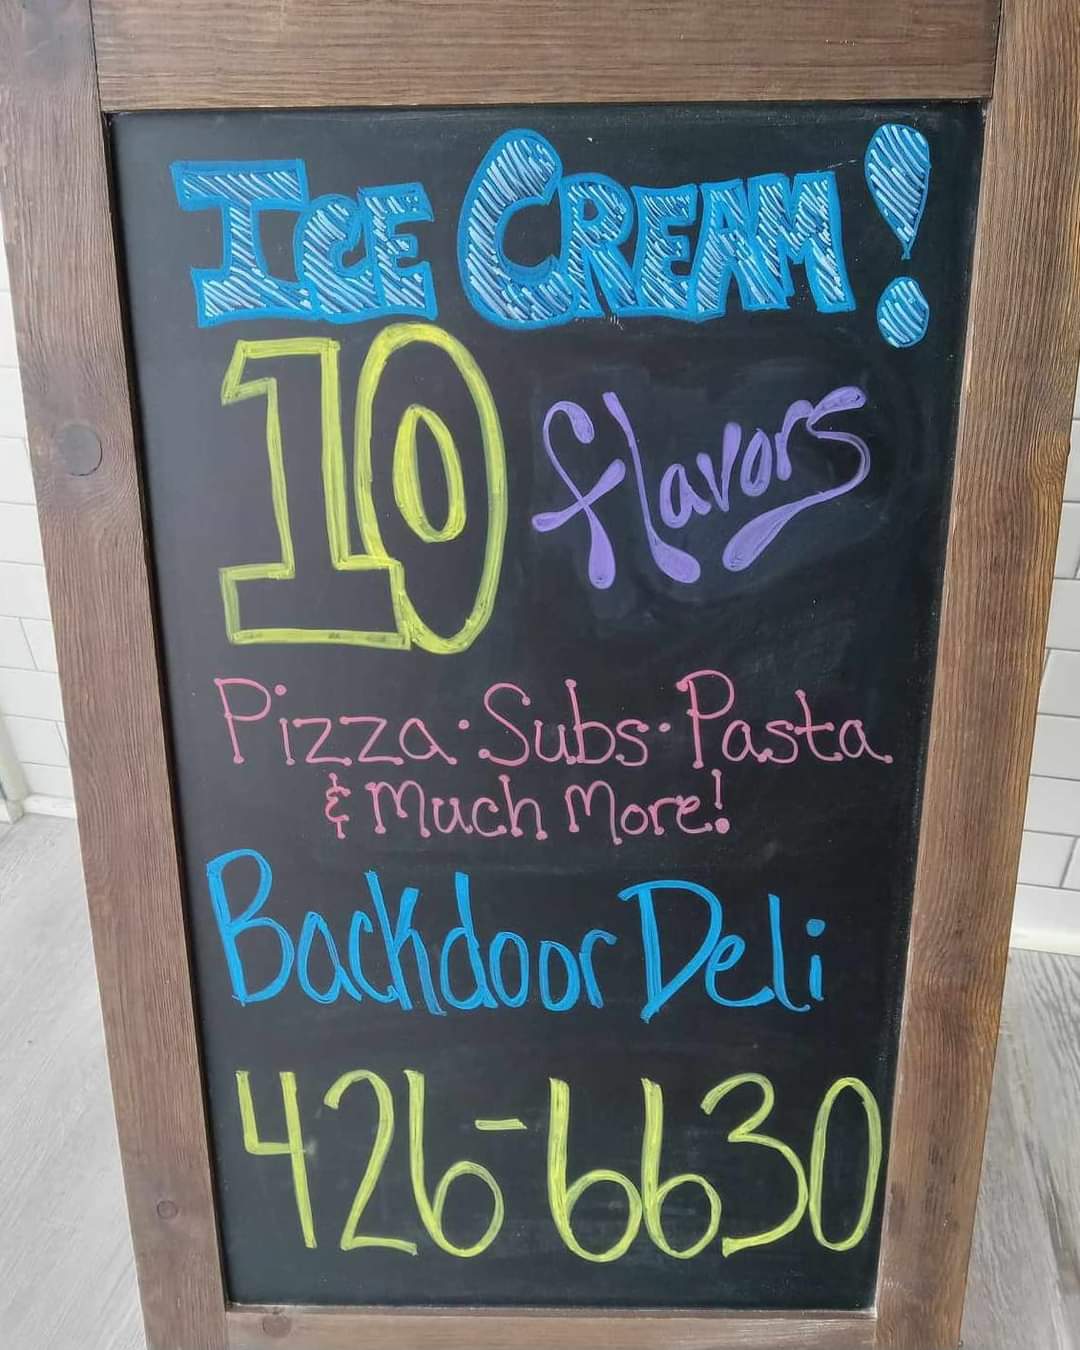 ICE CREAM!
10 flavors
Pizza · Subs · Pasta
& Much More!
Backdoor Deli
426-6630